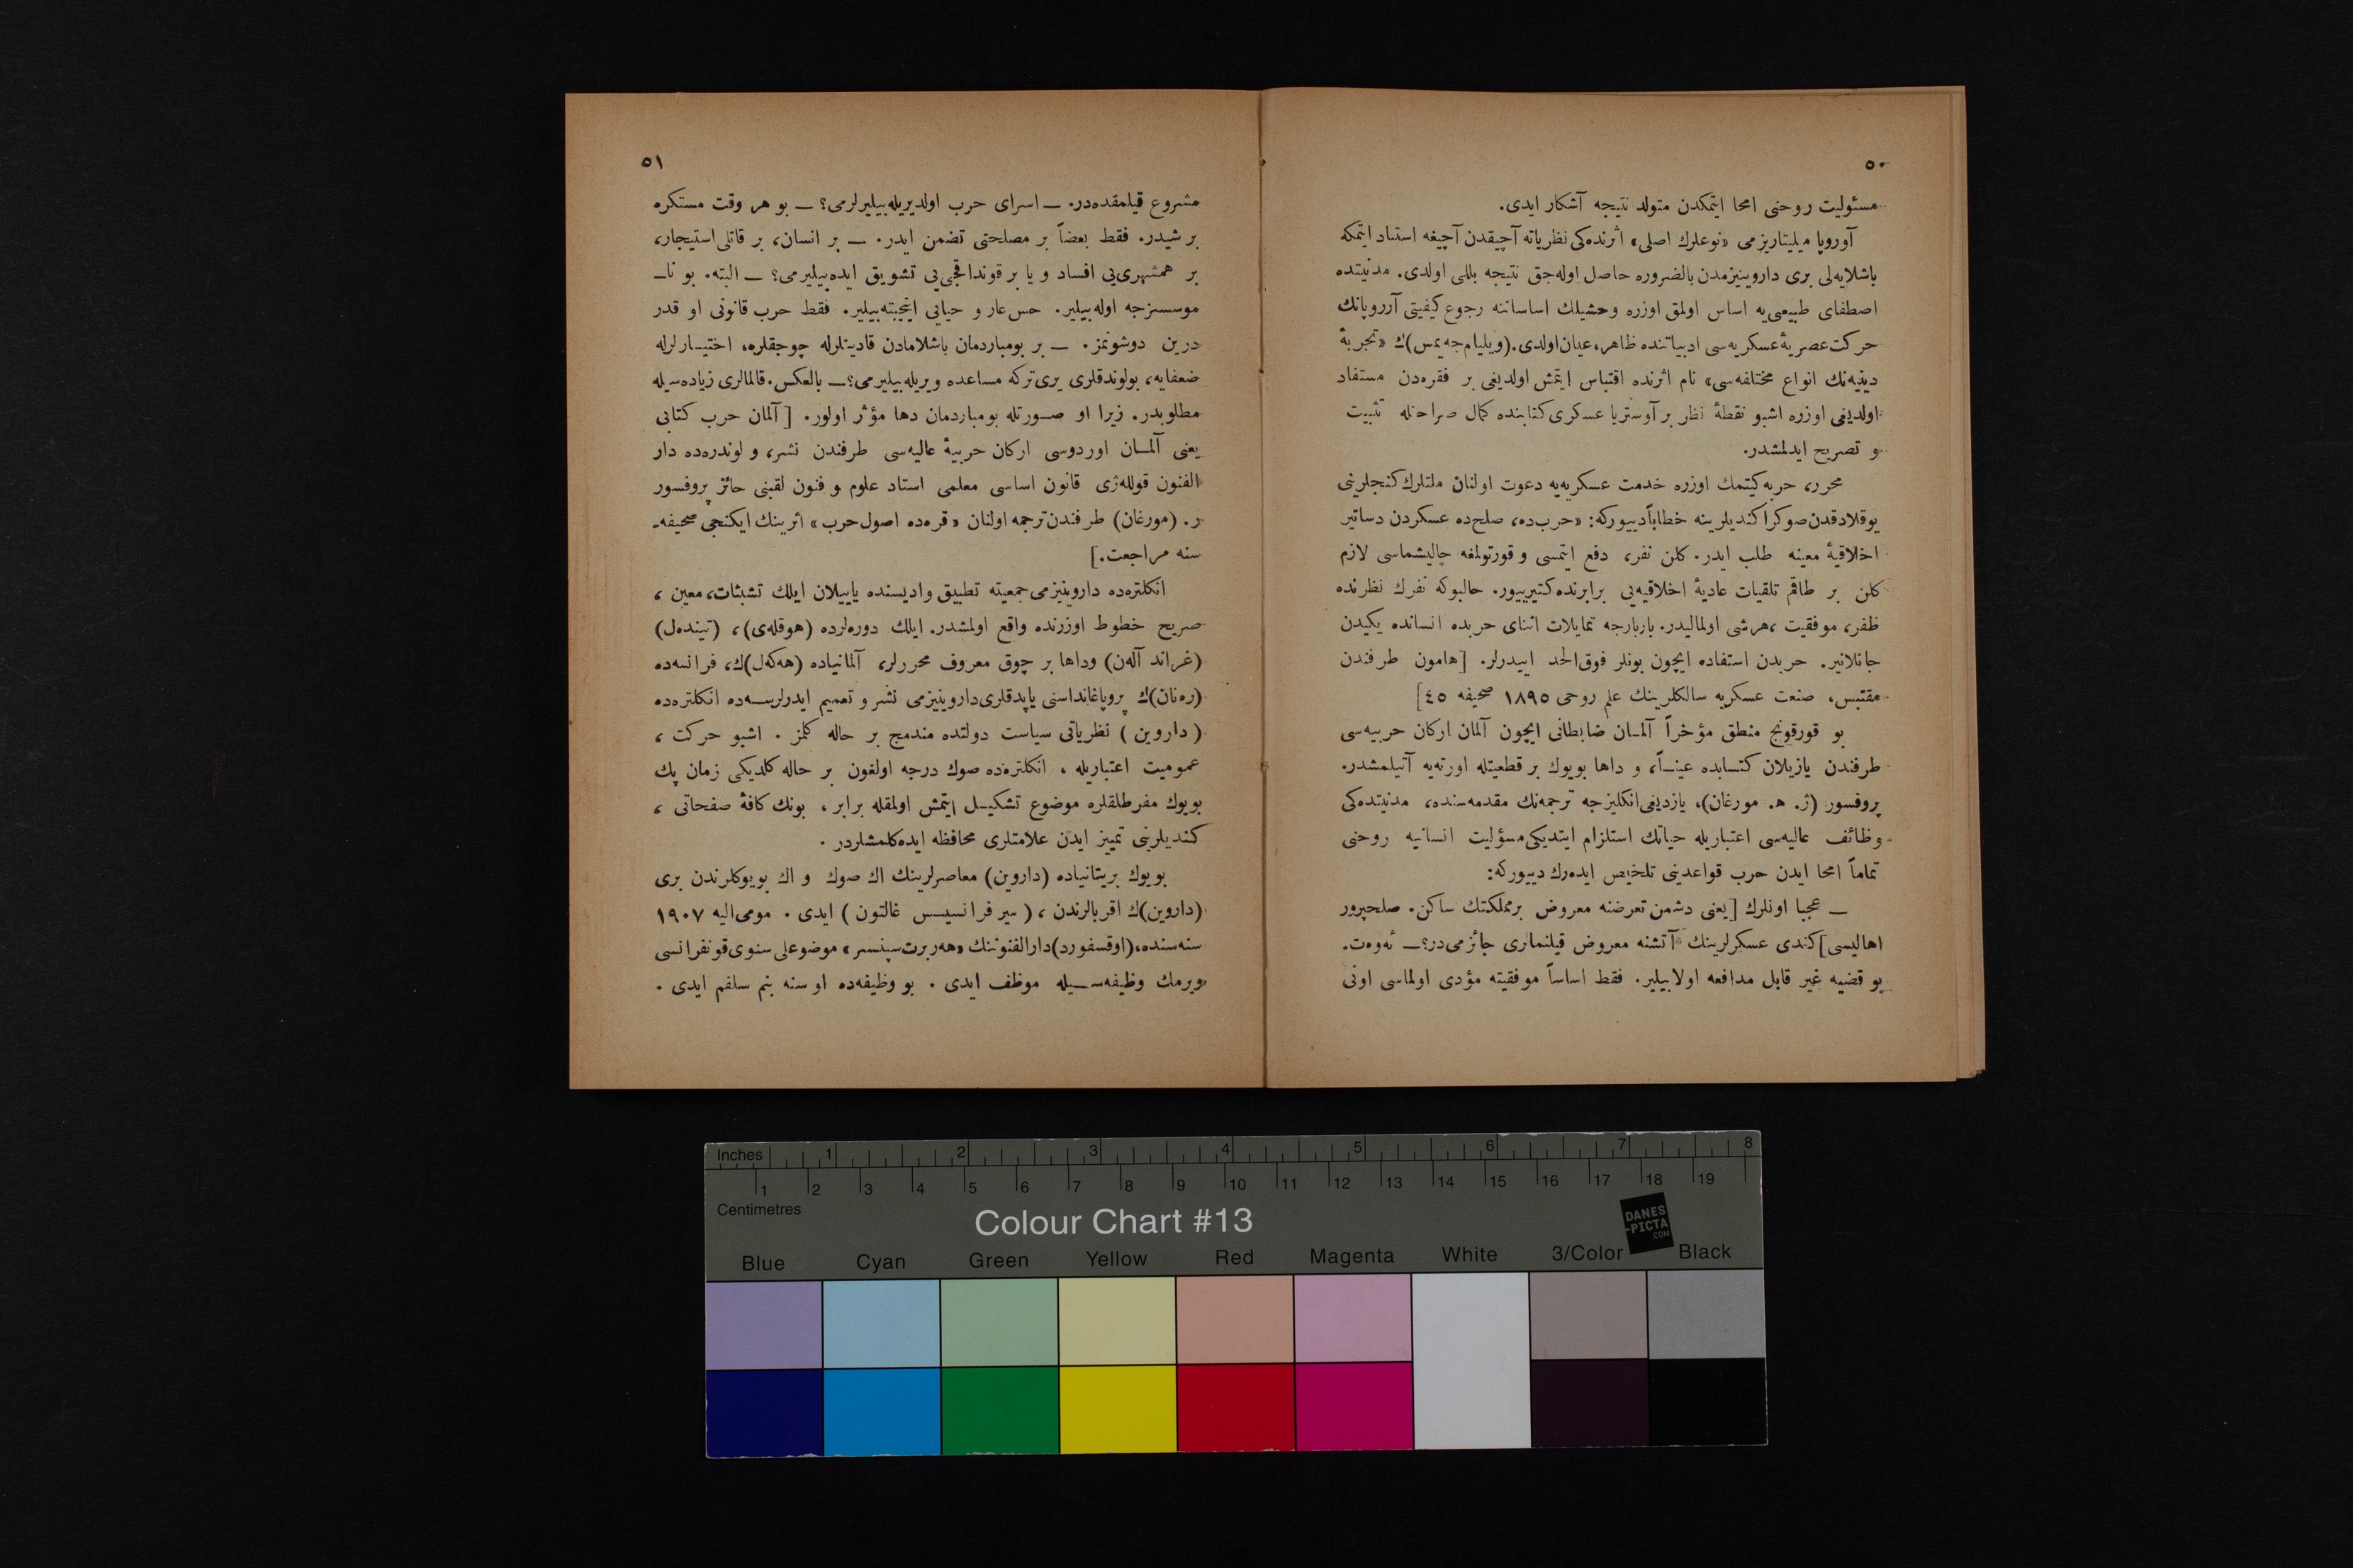 ٥٠
مسئولیت روحنی امحا ایتمكدن متولد نتیجه آشكار ایدی.
آوروپا میلیتاریزمی «نوعلرك اصلی» اثرنده‌كی نظریاته آچیقدن آچیغه استناد ایتمكه
باشلایه‌لی بری داروینیزمدن بالضروره حاصل اوله‌جق نتیجه بللی اولدی. مدنیتده
اصطفای طبیعی‌یه اساس اولمق اوزره وحشیلك اساساتنه رجوع كیفیتی آوروپانك
حركت عصریۀ عسكریه‌سی ادبیاتنده ظاهر، عیان اولدی. (ویلیام جه‌یمس)ك «تجربۀ
دینیه‌نك انواع مختلفه‌سی» نام اثرنده اقتباس ایتمش اولدیغی بر فقره‌دن مستفاد
اولدیغی اوزره اشبو نقطۀ نظر بر آوستریا عسكری كتابنده كمال صراحتله تثبیت
و تصریح ایدلمشدر.
محرر، حربه كیتمك اوزره خدمت عسكریه‌یه دعوت اولنان ملتلرك كنجلرینی
یوقلادقدن صوكرا كندیلرینه خطاباً دییوركه: «حرب‌ده، صلح‌ده عسكردن دساتیر
اخلاقیۀ معینه طلب ایدر. كلن نفر، دفع ایتمسی و قورتولمغه چالیشماسی لازم
كلن بر طاقم تلقیات عادیۀ اخلاقیه‌یی برابرنده كتیرییور. حالبوكه نفرك نظرنده
ظفر، موفقیت، هرشی اولمالیدر. باربارجه تمایلات اثنای حربده انسانده یكیدن
جانلانیر. حربدن استفاده ایچون بونلر فوق‌الحد اییدرلر. [هامون طرفندن
مقتبس، صنعت عسكریه سالكلرینك علم روحی ١٨٩٥ صحیفه ٤٥]
بو قورقونج منطق مؤخراً آلمـان ضابطانی ایچون آلمان اركان حربیه‌سی
طرفندن یازیلان كتـابده عینـاً، و داها بویوك بر قطعیتله اورته‌یه آتیلمشدر.
پروفسور (ژ. ه. مورغان)، یازدیغی انكلیزجه ترجمه‌نك مقدمه‌سنده، مدنیتده‌كی
وظائف عالیه‌سی اعتباریله حیاتك استلزام ایتدیكی مسؤلیت انسانیه روحنی
تماماً امحا ایدن حرب قواعدینی تلخیص ایده‌رك دییوركه:
— عجبا اونلرك [یعنی دشمن تعرضنه معروض برمملكتك ساكن. صلحپرور
اهالیسی] كندی عسكرلرینك آتشنه معروض قیلنمالری جائزمی‌در؟ — ئه‌وه‌ت.
بو قضیه غیر قابل مدافعه اولابیلیر. فقط اساساً موفقیته مؤدی اولماسی اونی
٥١
مشروع قیلمقده‌در. — اسرای حرب اولدیریله‌بیلیرلرمی؟ — بو هر وقت مستكره
بر شیدر. فقط بعضاً بر مصلحتی تضمن ایدر. — بر انسان، بر قاتلی استیجار،
بر همشهری‌یی افساد و یا بر قونداقجی‌یی تشویق ایده‌بیلیرمی؟ — البته. بو نا-
موسسزجه اوله‌بیلیر. حس عار و حیایی اینجیته‌بیلیر. فقط حرب قانونی او قدر
درین دوشونمز. — بر بومباردمان باشلامادن قادینلرله چوجقلره، اختیـارلرله
ضعفایه، بولوندقلری یری تركه مساعده ویریله‌بیلیرمی؟ — بالعكس. قالمالری زیاده‌سیله
مطلوبدر. زیرا او صـورتله بومباردمان دها مؤثر اولور. [آلمان حرب كتابی
یعنی آلمـان اوردوسی اركان حربیۀ عالیه‌سی طرفندن نشر، و لوندره‌ده دار
الفنون قولله‌ژی قانون اساسی معلمی استاد علوم و فنون لقبنی حائز پروفسور
ر. (مورغان) طرفندن ترجمه اولنان «قره‌ده اصول حرب» اثرینك ایكنجی صحیفه-
سنه مراجعت.]
انكلتره‌ده داروینیزمی جمعیته تطبیق وادیسنده یاپیلان ایلك تشبثات، معین ،
صریح خطوط اوزرنده واقع اولمشدر. ایلك دوره‌لرده (هوقله‌ی)، (تینده‌ل)
(غراند آله‌ن) وداها بر چوق معروف محررلر، آلمانیاده (هه‌كه‌ل)ك، فرانسه‌ده
(ره‌نان)ك پروپاغانداسنی یاپدقلری داروینیزمی نشر و تعمیم ایدرلرسـه‌ده انكلتره‌ده
( داروین ) نظریاتی سیاست دولتده مندمج بر حاله كلمز . اشبو حركت ،
عمومیت اعتباریله ، انكلتره‌ده صوك درجه اولغون بر حاله كلدیكی زمان پك
بویوك مفرطلقلره موضوع تشكیـل ایتمش اولمقله برابر ، بونك كافۀ صفحاتی ،
كندیلرینی تمییز ایدن علامتلری محافظه ایده‌كلمشلردر .
بویوك بریتانیاده (داروین) معاصرلرینك اك صوك و اك بویوكلرندن بری
(داروین)ك اقربالرندن ، ( سیر فرانسیـس غالتون ) ایدی . مومی‌الیه ١٩٠٧
سنه‌سنده، (اوقسفورد) دارالفنوننك «هه‌ربرت سپنسر» موضوعلی سنوی قونفرانسی
ویرمك وظیفه‌سـیله موظف ایدی . بو وظیفه‌ده او سنه بنم سلفم ایدی .
Inches 1 2 3 4 5 6 7 8
1 2 3 4 5 6 7 8 9 10 11 12 13 14 15 16 17 18 19
Centimetres
Colour Chart #13
DANES
-PICTA
.COM
Blue Cyan Green Yellow Red Magenta White 3/Color Black